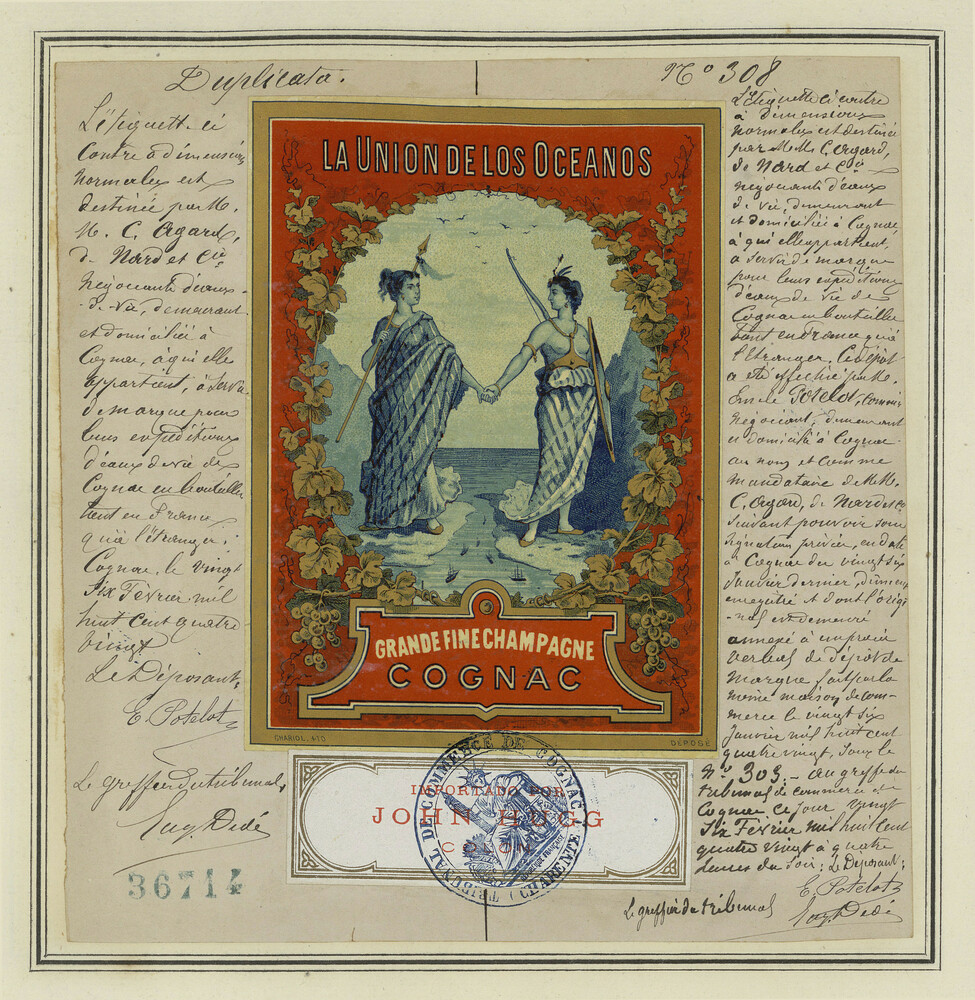 Duplicata.
No 308
L'étiquette ci
contre à dimensions
normales est
destinée par M.
M. C. Agard,
de Nard et Cie
négociants d'eaux-
de vie, demeurant
et domiciliés à
Cognac, à qui elle
appartient, à servir
de marque pour
leurs expéditions
d'eaux de vie de
Cognac en bouteilles
tant en France
qu'à l'étranger.
Cognac, le vingt
six Février mil
huit cent quatre
vingt
Le Déposant,
E. Potelot
Le greffier du tribunal,
Eug. Dedé
36714
LA UNION DE LOS OCEANOS
GRANDE FINE CHAMPAGNE
COGNAC
CHARIOL. ATO
DÉPOSÉ
IMPORTADO POR
JOHN HUGG
COLON
TRIBUNAL DE COMMERCE DE COGNAC (CHARENTE)
L'étiquette ci contre
à dimensions
normales est destinée
par M.M. C. Agard,
de Nard et Cie
négociants d'eaux
de vie, demeurant
et domiciliés à Cognac,
à qui elle appartient,
à servir de marque
pour leurs expéditions
d'eaux de vie de
Cognac en bouteilles
tant en France qu'à
l'Etranger. Ce dépôt
a été effectué par M.
Emile Potelot, commis
négociant, demeurant
et domicilié à Cognac
au nom et comme
mandataire de M.M.
C. Agard, de Nard et Cie
suivant pouvoir sous
signature privée, en date
à Cognac du vingt six
Janvier dernier, dûment
enregistré et dont l'origi-
-nal est demeuré
annexé à un procès
verbal de Dépôt de
marque fait par la
même maison de com-
merce le vingt six
Janvier mil huit cent
quatre vingt, sous le
No 303. - au greffe du
tribunal de commerce de
Cognac ce jour vingt
six Février mil huit cent
quatre vingt à quatre
heures du soir; Le Déposant;
E. Potelot
Le greffier du tribunal
Eug. Dedé